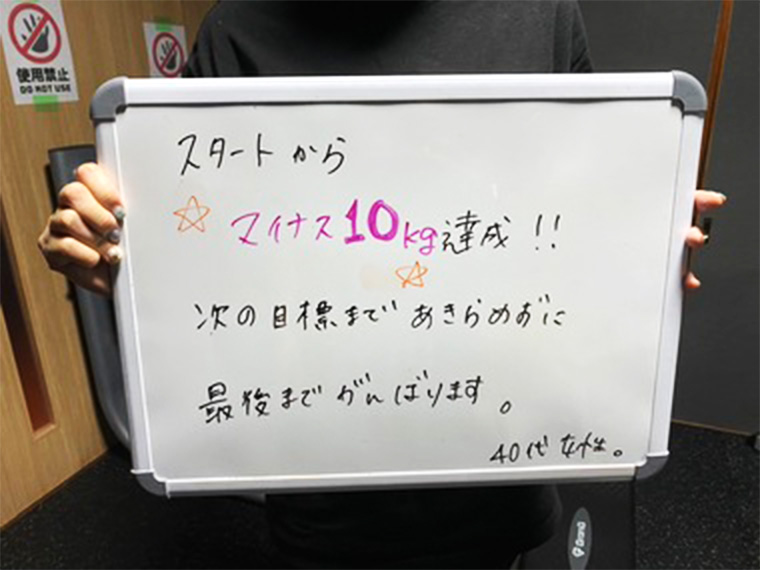 使用禁止
DO NOT USE
スタートから
☆ マイナス10kg達成!!
☆
次の目標まであきらめずに
最後までがんばります。
40代 女性。